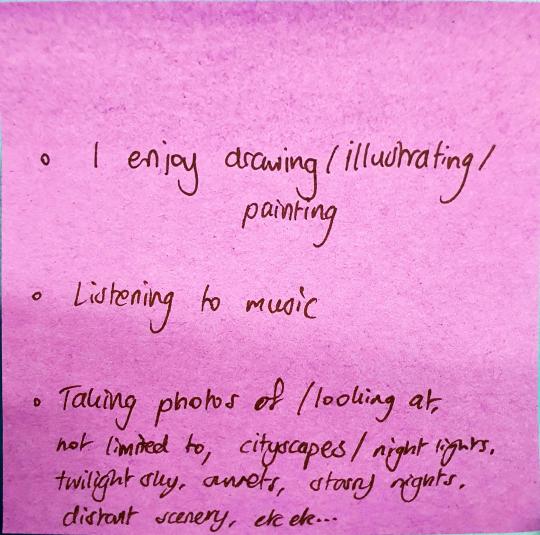 o I enjoy drawing / illustrating /
painting
o Listening to music
o Taking photos of / looking at,
not limited to, cityscapes / night lights,
twilight sky, sunsets, starry nights,
distant scenery, etc etc...